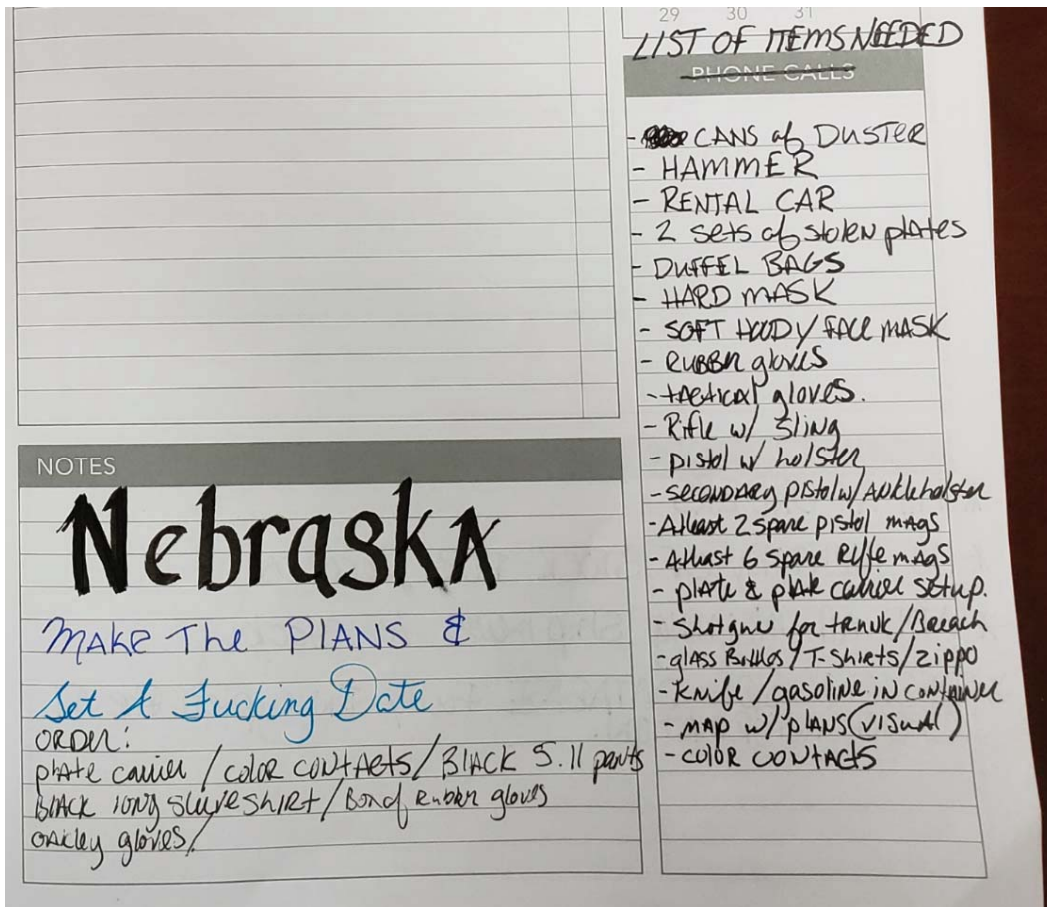 29 30 31
LIST OF ITEMS NEEDED
PHONE CALLS
- CANS of DUSTER
- HAMMER
- RENTAL CAR
- 2 sets of stolen plates
- DUFFEL BAGS
- HARD MASK
- SOFT HOODY/FACE MASK
- RUBBER gloves
- tactical gloves.
- Rifle w/ Sling
- pistol w/ holster
- SECONDARY pistol w/ Ankle holster
- Atleast 2 spare pistol mags
- Atleast 6 spare Rifle mags
- plate & plate carrier setup.
- Shotgun for trunk/Breach
- glass Bottles/T-Shirts/Zippo
- Knife/gasoline in container
- map w/ plans (visual)
- COLOR CONTACTS
NOTES
Nebraska
MAKE The PLANS &
Set A Fucking Date
ORDER:
plate carrier / color contacts / BLACK 5.11 pants
BLACK long sleeve shirt / Box of Rubber gloves
oakley gloves/